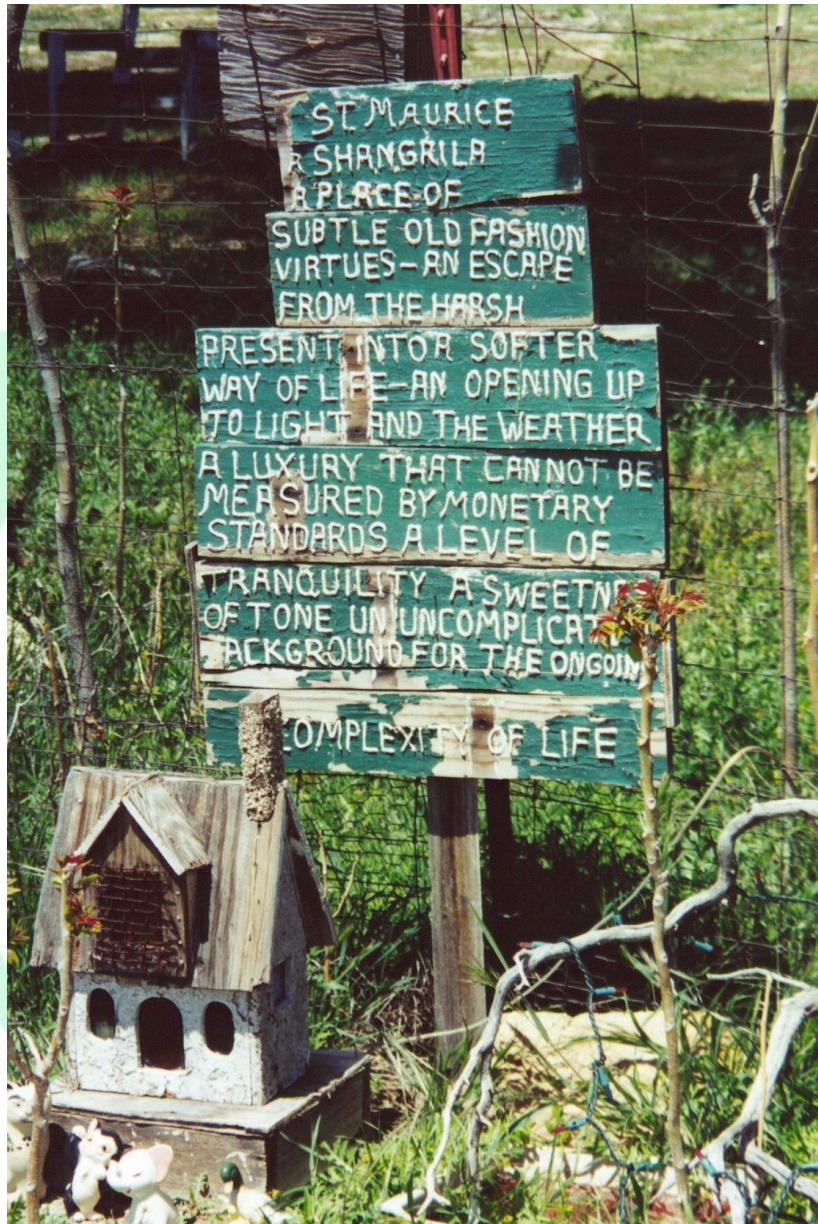 ST. MAURICE
A SHANGRILA
A PLACE OF
SUBTLE OLD FASHION
VIRTUES-AN ESCAPE
FROM THE HARSH
PRESENT INTO A SOFTER
WAY OF LIFE-AN OPENING UP
TO LIGHT AND THE WEATHER
A LUXURY THAT CANNOT BE
MEASURED BY MONETARY
STANDARDS A LEVEL OF
TRANQUILITY A
OF TONE UN UNCOMPLICAT
ACKGROUND FOR THE ONGOIN
COMPLEXITY OF LIFE